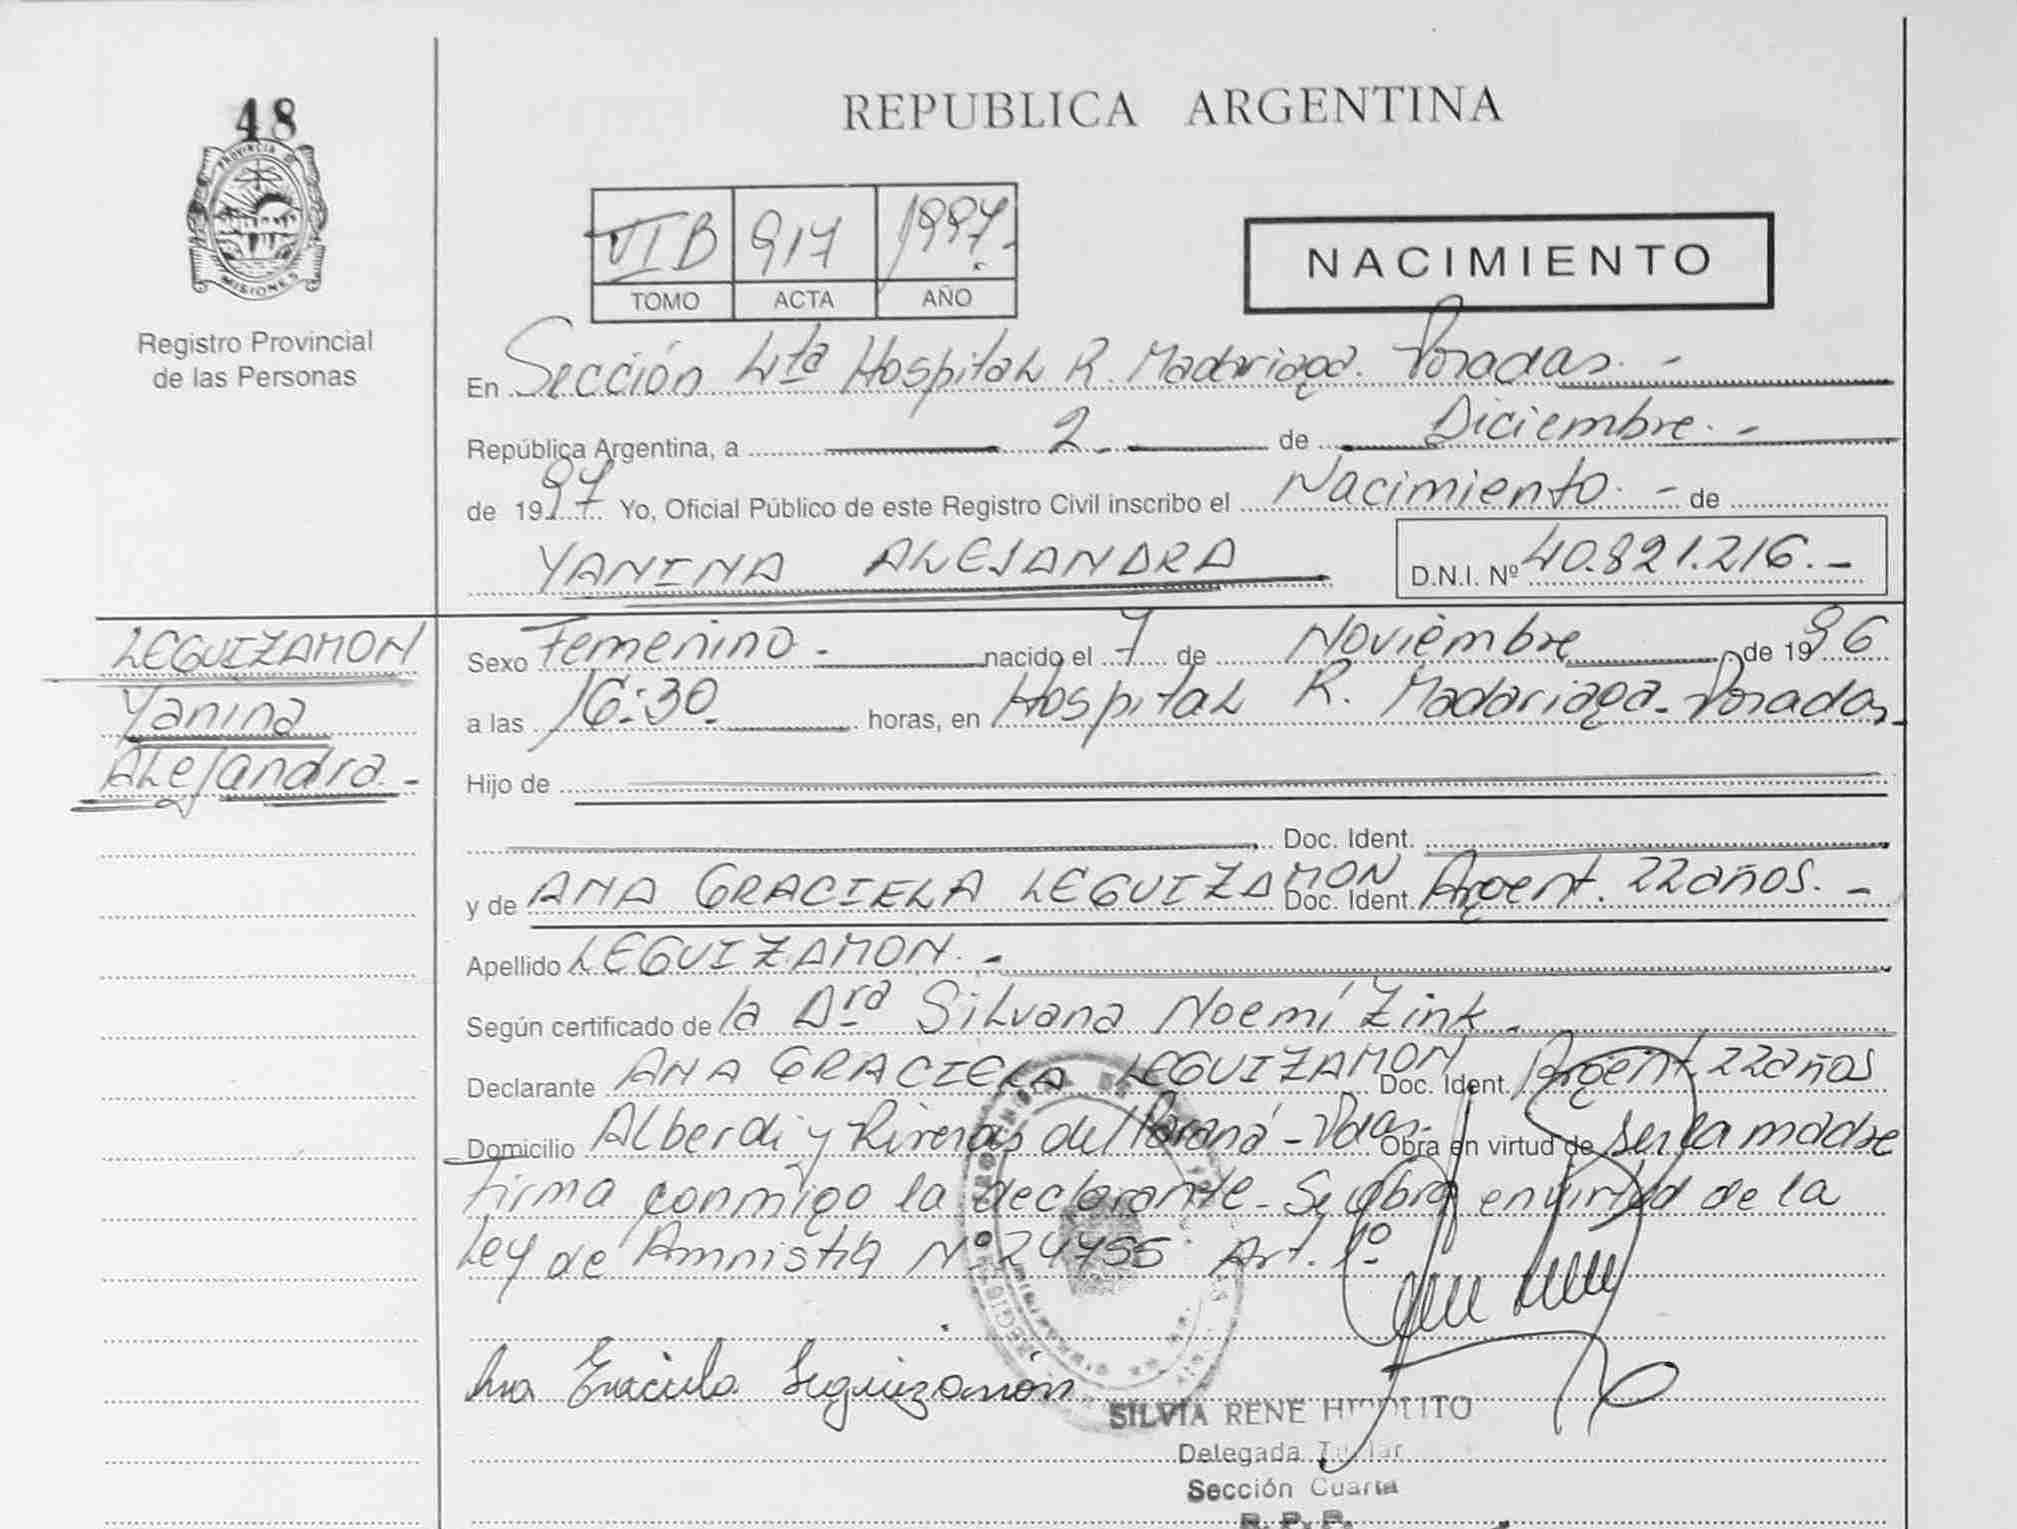 48
PROVINCIA DE
MISIONES
Registro Provincial
de las Personas
REPUBLICA ARGENTINA
VI B 917 1997.-
TOMO ACTA AÑO
NACIMIENTO
En Sección 4ta Hospital R. Madariaga. Posadas.-
República Argentina, a 2. de Diciembre.-
de 1997 Yo, Oficial Público de este Registro Civil inscribo el Nacimiento.- de
YANINA ALEJANDRA D.N.I. Nº 40.821.216.-
LEGUIZAMON
Yanina
Alejandra.-
Sexo Femenino.- nacido el 7 de Noviembre de 1996
a las 16:30. horas, en Hospital R. Madariaga. Posadas.-
Hijo de
Doc. Ident.
y de ANA GRACIELA LEGUIZAMON Doc. Ident. Argent. 22 años.-
Apellido LEGUIZAMON.-
Según certificado de la Dra Silvana Noemí Zink.-
Declarante ANA GRACIELA LEGUIZAMON Doc. Ident. Argent. 22 años
Domicilio Alberdi y Riveras del Paraná - Pdas. Obra en virtud de ser la madre
Firma conmigo la declarante. Se obra en virtud de la
Ley de Amnistía Nº 24755 Art. 1º
Ana Graciela Leguizamón
SILVIA RENE HIPOLITO
Delegada Titular
Sección Cuarta
R. P. P.